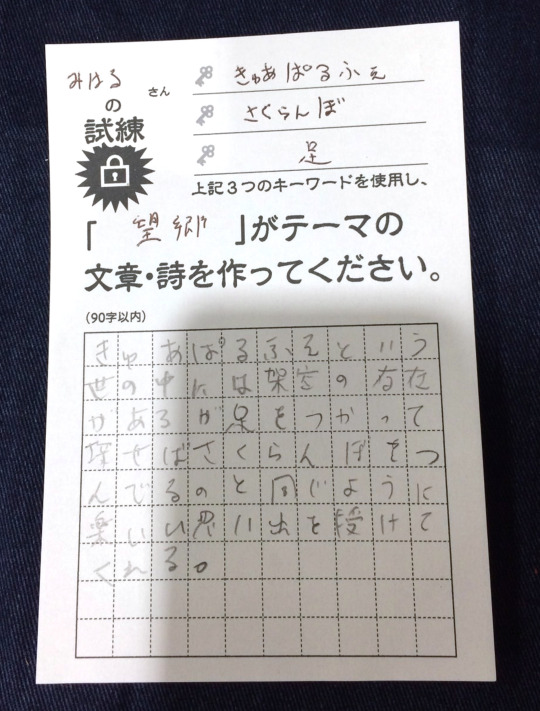 みはる さん
の
試練
きゅあぱるふぇ
さくらんぼ
足
上記3つのキーワードを使用し、
「望郷」がテーマの
文章・詩を作ってください。
(90字以内)
きゅあぱるふぇという
世の中には架空の存在
があるが足をつかって
探せばさくらんぼをつ
んでるのと同じように
楽しい思い出を授けて
くれる。